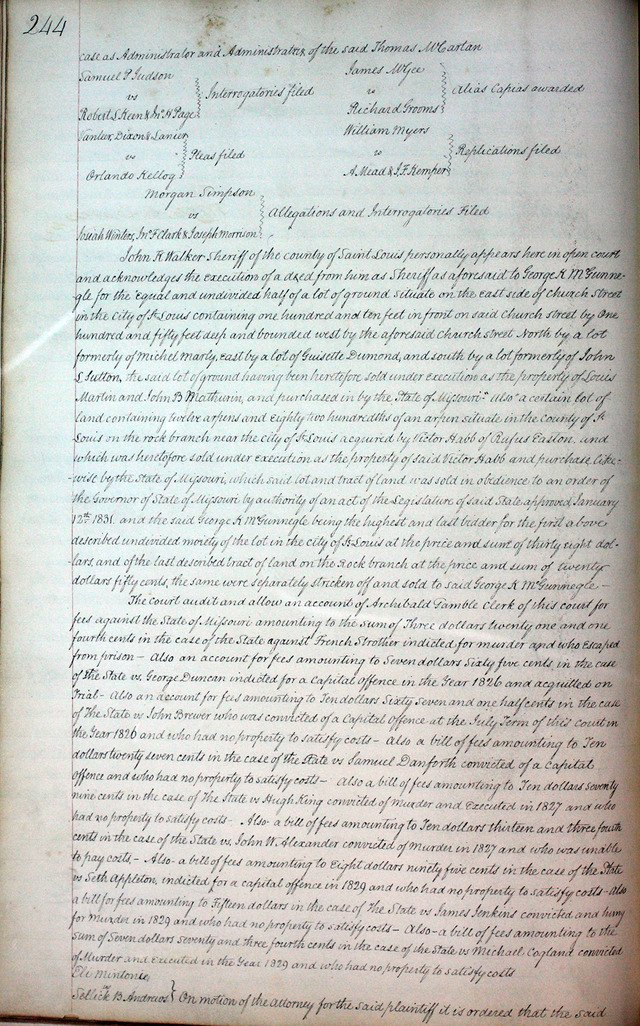 244
case as Administrator and Administratrix of the said Thomas McCartan
Samuel P Judson
vs
Robert S Keen & Jno H Page
Interrogatories filed
James McGee
vs
Richard Grooms
Alias Capias awarded
Vanlier, Dixon & Lanier
vs
Orlando Kellog
Pleas filed
William Myers
vs
A. Mead & J. F. Kemper
Replications filed
Morgan Simpson
vs
Josiah Winters, Jno F Clark & Joseph Morrison
Allegations and Interrogatories Filed
John K Walker Sheriff of the county of Saint Louis personally appears here in open court
and acknowledges the execution of a deed from him as Sheriff as aforesaid to George K McGunne-
gle for the equal and undivided half of a lot of ground situate on the east side of Church Street
in the city of St Louis containing one hundred and ten feet in front on said Church street by One
hundred and fifty feet deep and bounded west by the aforesaid Church street North by a lot
formerly of Michel Marly, east by a lot of Guisette Dumond, and south by a lot formerly of John
L Sutton, the said lot of ground having been heretofore sold under execution as the property of Louis
Martin and John B Mathurin, and purchased in by the State of Missouri. Also a certain lot of
land containing twelve arpens and eighty two hundredths of an arpen situate in the county of St
Louis on the rock branch near the city of St Louis acquired by Victor Habb of Rufus Easton, and
which was heretofore sold under execution as the property of said Victor Habb and purchase like-
-wise by the State of Missouri, which said lot and tract of land was sold in obedience to an order of
the Governor of State of Missouri by authority of an act of the Legislature of said State approved January
12th 1831. and the said George K McGunnegle being the highest and last bidder for the first above
described undivided moiety of the lot in the city of St Louis at the price and sum of thirty eight dol-
lars, and of the last described tract of land on the Rock branch at the price and sum of twenty
dollars fifty cents, the same were separately stricken off and sold to said George K McGunnegle —
The court audit and allow an account of Archibald Gamble Clerk of this court for
fees against the State of Missouri amounting to the Sum of Three dollars twenty one and one
fourth cents in the case of the State against French Strother indicted for murder and who escaped
from prison — Also an account for fees amounting to Seven dollars Sixty five cents, in the case
of the State vs George Duncan indicted for a Capital Offence in the Year 1826 and acquitted on
Trial — Also an account for fees amounting to Ten dollars Sixty Seven and one half cents in the case
of The State vs John Brewer who was convicted of a Capital Offence at the July Term of this court in
the Year 1826 and who had no property to satisfy costs — Also a bill of fees amounting to Ten
dollars twenty seven cents in the case of the State vs Samuel Danforth convicted of a Capital
offence and who had no property to satisfy costs — Also a bill of fees amounting to Ten dollars seventy
nine cents in the case of The State vs Hugh King convicted of murder and Executed in 1827 and who
had no property to satisfy costs — Also a bill of fees amounting to Ten dollars thirteen and three fourth
cents in the case of the State vs John W. Alexander convicted of Murder in 1827 and who was unable
to pay costs, — Also a bill of fees amounting to Eight dollars ninety five cents in the case of the State
vs Seth Appleton, indicted for a capital offence in 1829 and who had no property to satisfy costs — Also
a bill for fees amounting to Fifteen dollars in the case of The State vs James Jenkins convicted and hung
for Murder in 1829 and who had no property to satisfy costs — Also — a bill of fees amounting to the
sum of Seven dollars seventy and three fourth cents in the case of the State vs Michael Cogland convicted
of Murder and Executed in the Year 1829 and who had no property to satisfy costs
Eli Mintonie
vs
Sellick B. Andrews
On motion of the Attorney for the said plaintiff it is ordered that the said